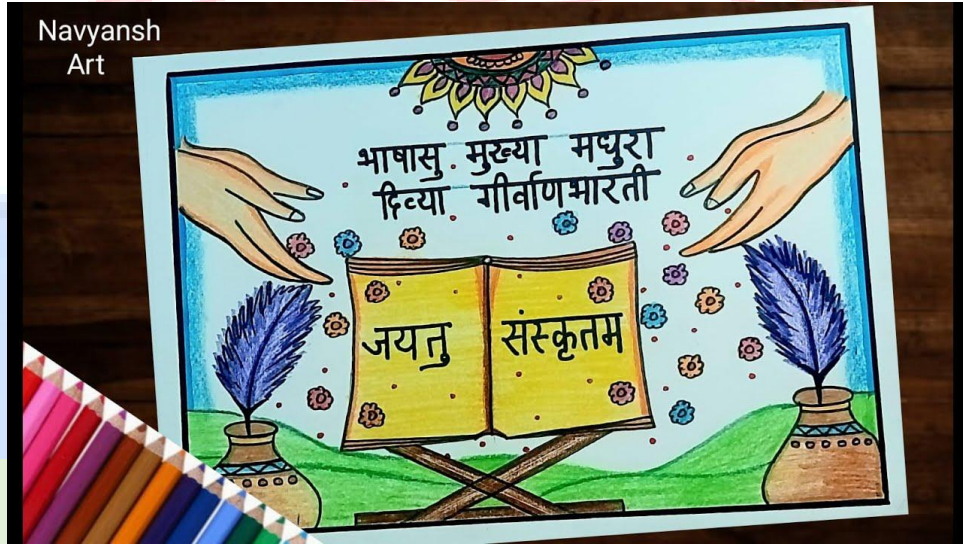 Navyansh
Art
भाषासु मुख्या मधुरा
दिव्या गीर्वाणभारती
जयतु संस्कृतम